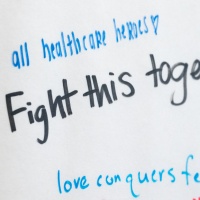 all healthcare heroes♡
Fight this toge
love conquers fe